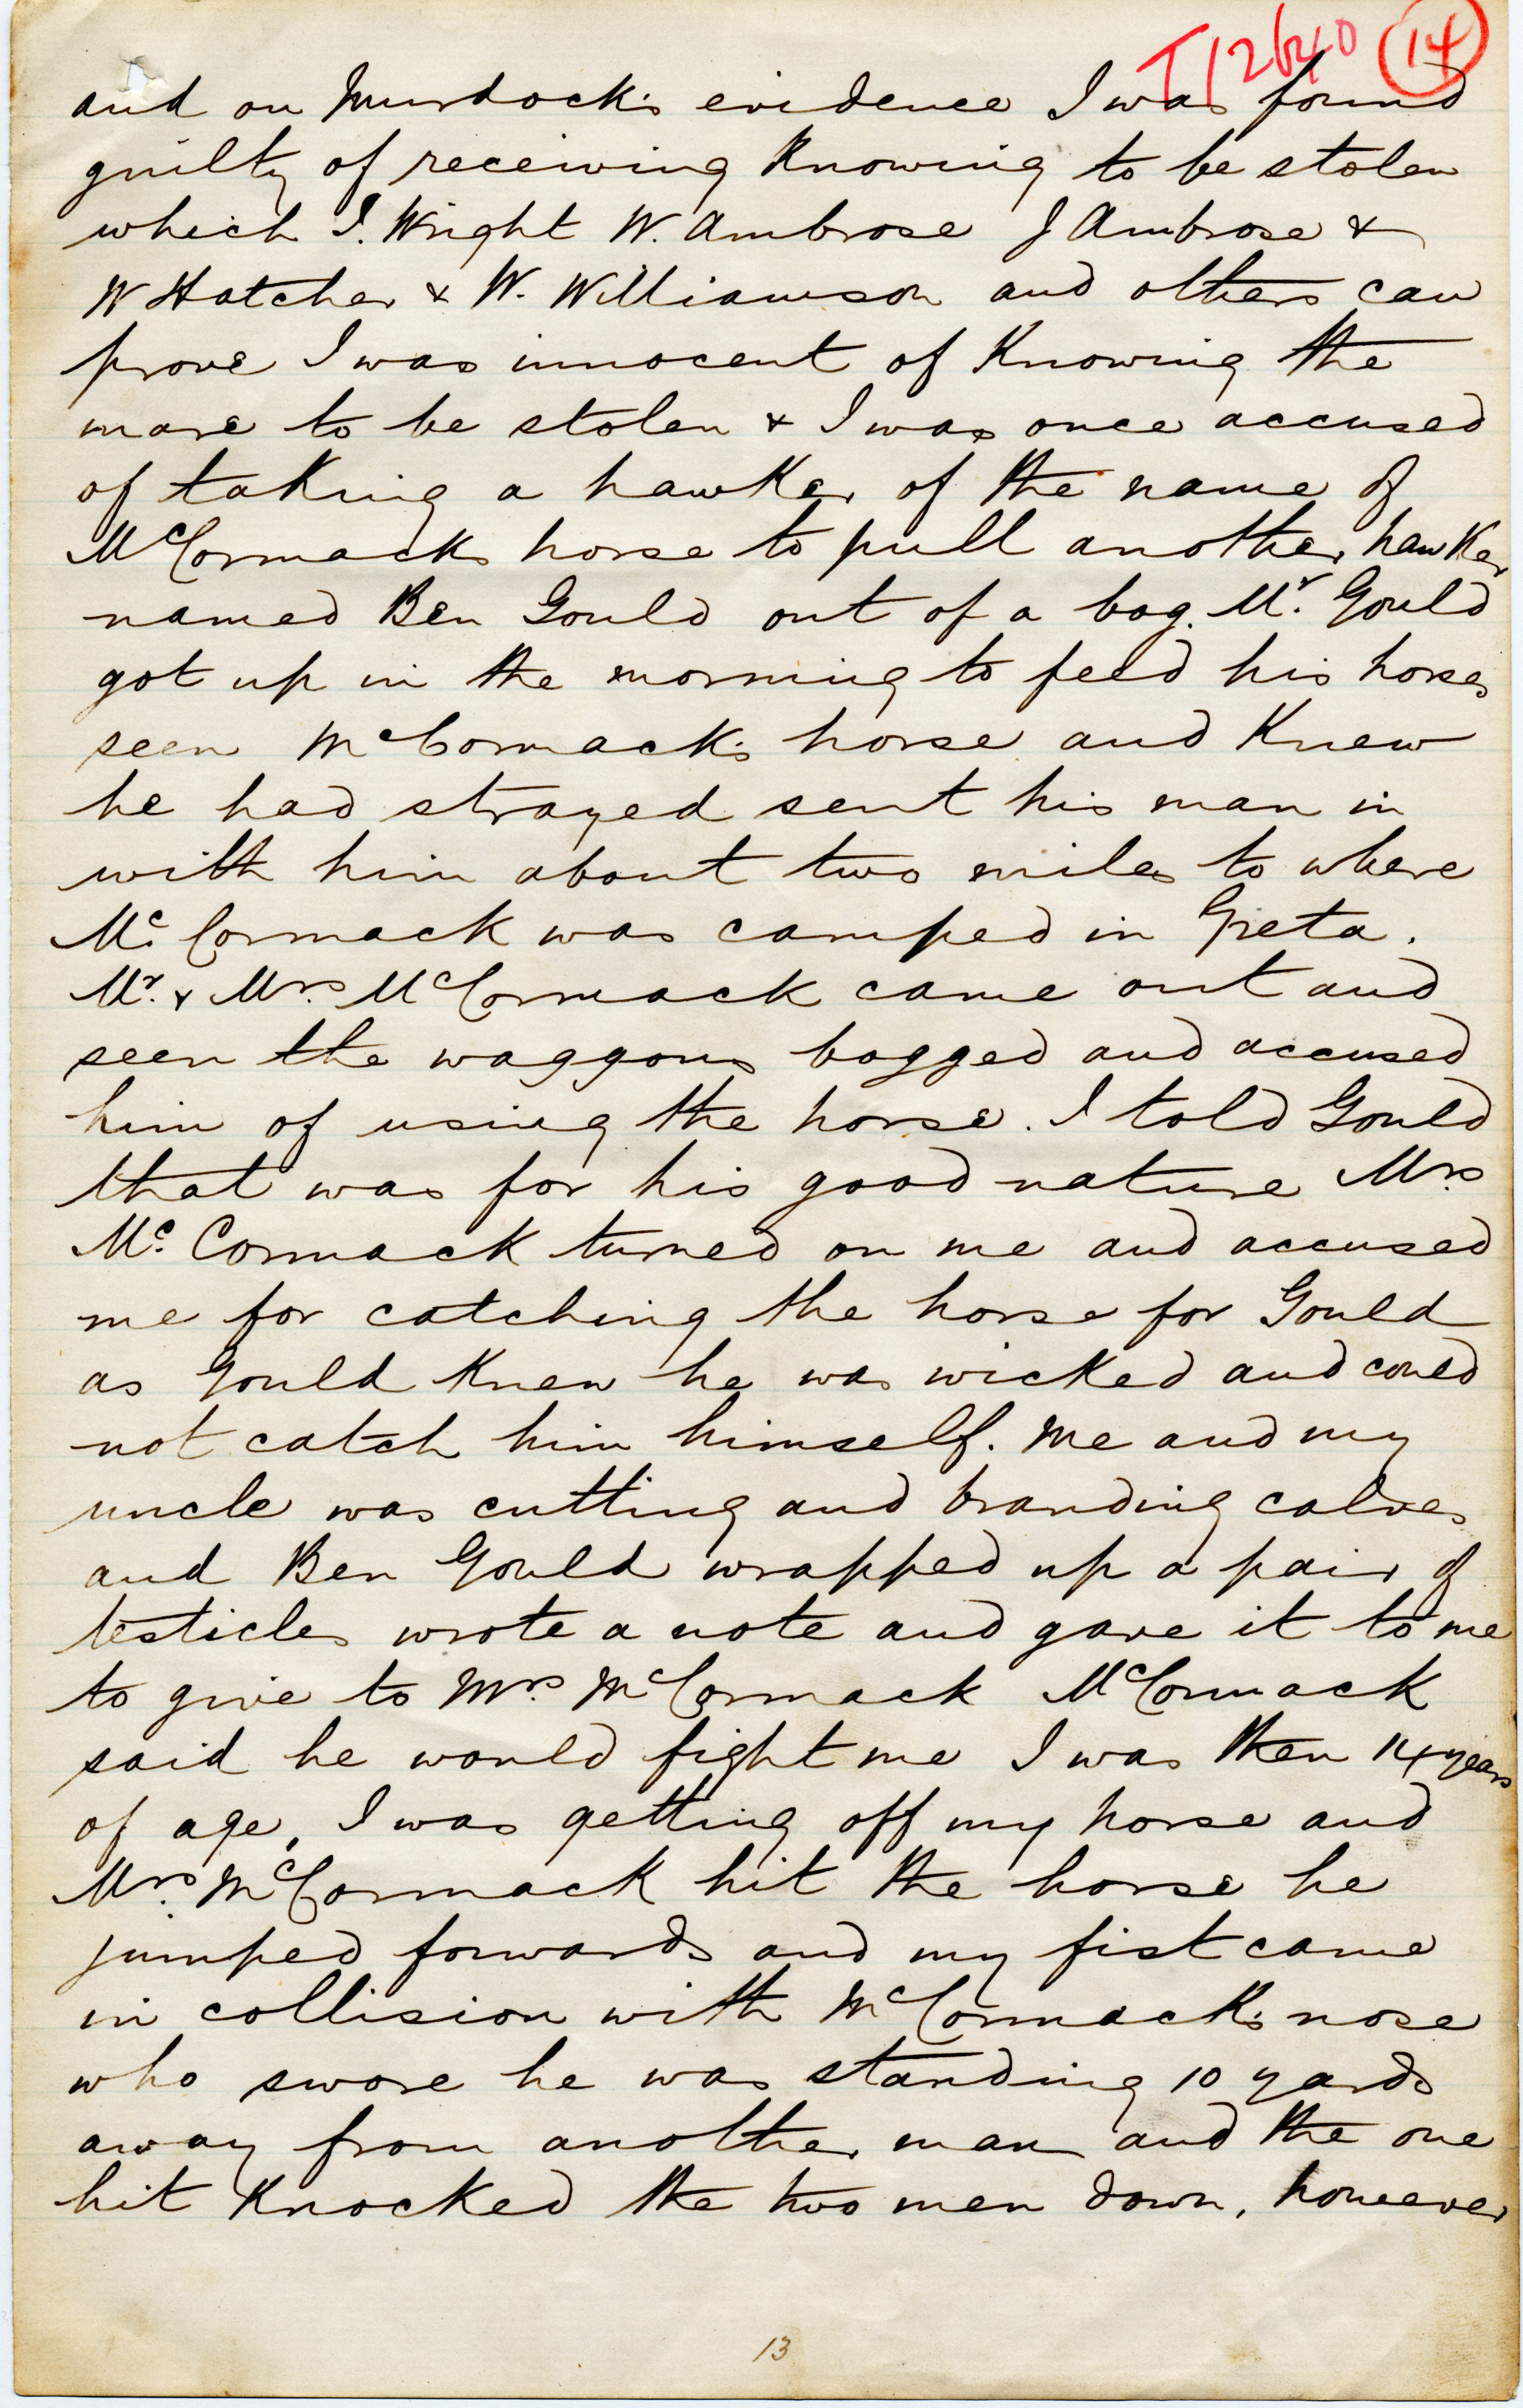 T12640 14
and on Murdock's evidence I was found
guilty of receiving Knowing to be stolen
which I. Wright W. Ambrose J Ambrose &
W Hatcher & W. Williamson and others can
prove I was innocent of Knowing the
mare to be stolen & I was once accused
of taking a hawker of the name of
McCormacks horse to pull another hawker
named Ben Gould out of a bog. Mr. Gould
got up in the morning to feed his horses
seen McCormack's horse and Knew
he had strayed sent his man in
with him about two miles to where
Mc. Cormack was camped in Greta.
Mr. & Mrs. McCormack came out and
seen the waggons bogged and accused
him of using the horse. I told Gould
that was for his good nature Mrs
Mc. Cormack turned on me and accused
me for catching the horse for Gould
as Gould Knew he was wicked and could
not catch him himself. Me and my
uncle was cutting and branding calves
and Ben Gould wrapped up a pair of
testicles wrote a note and gave it to me
to give to Mrs. McCormack McCormack
said he would fight me I was then 14 years
of age, I was getting off my horse and
Mrs. McCormack hit the horse he
jumped forwards and my fist came
in collision with McCormack's nose
who swore he was standing 10 yards
away from another man and the one
hit Knocked the two men down, however
13